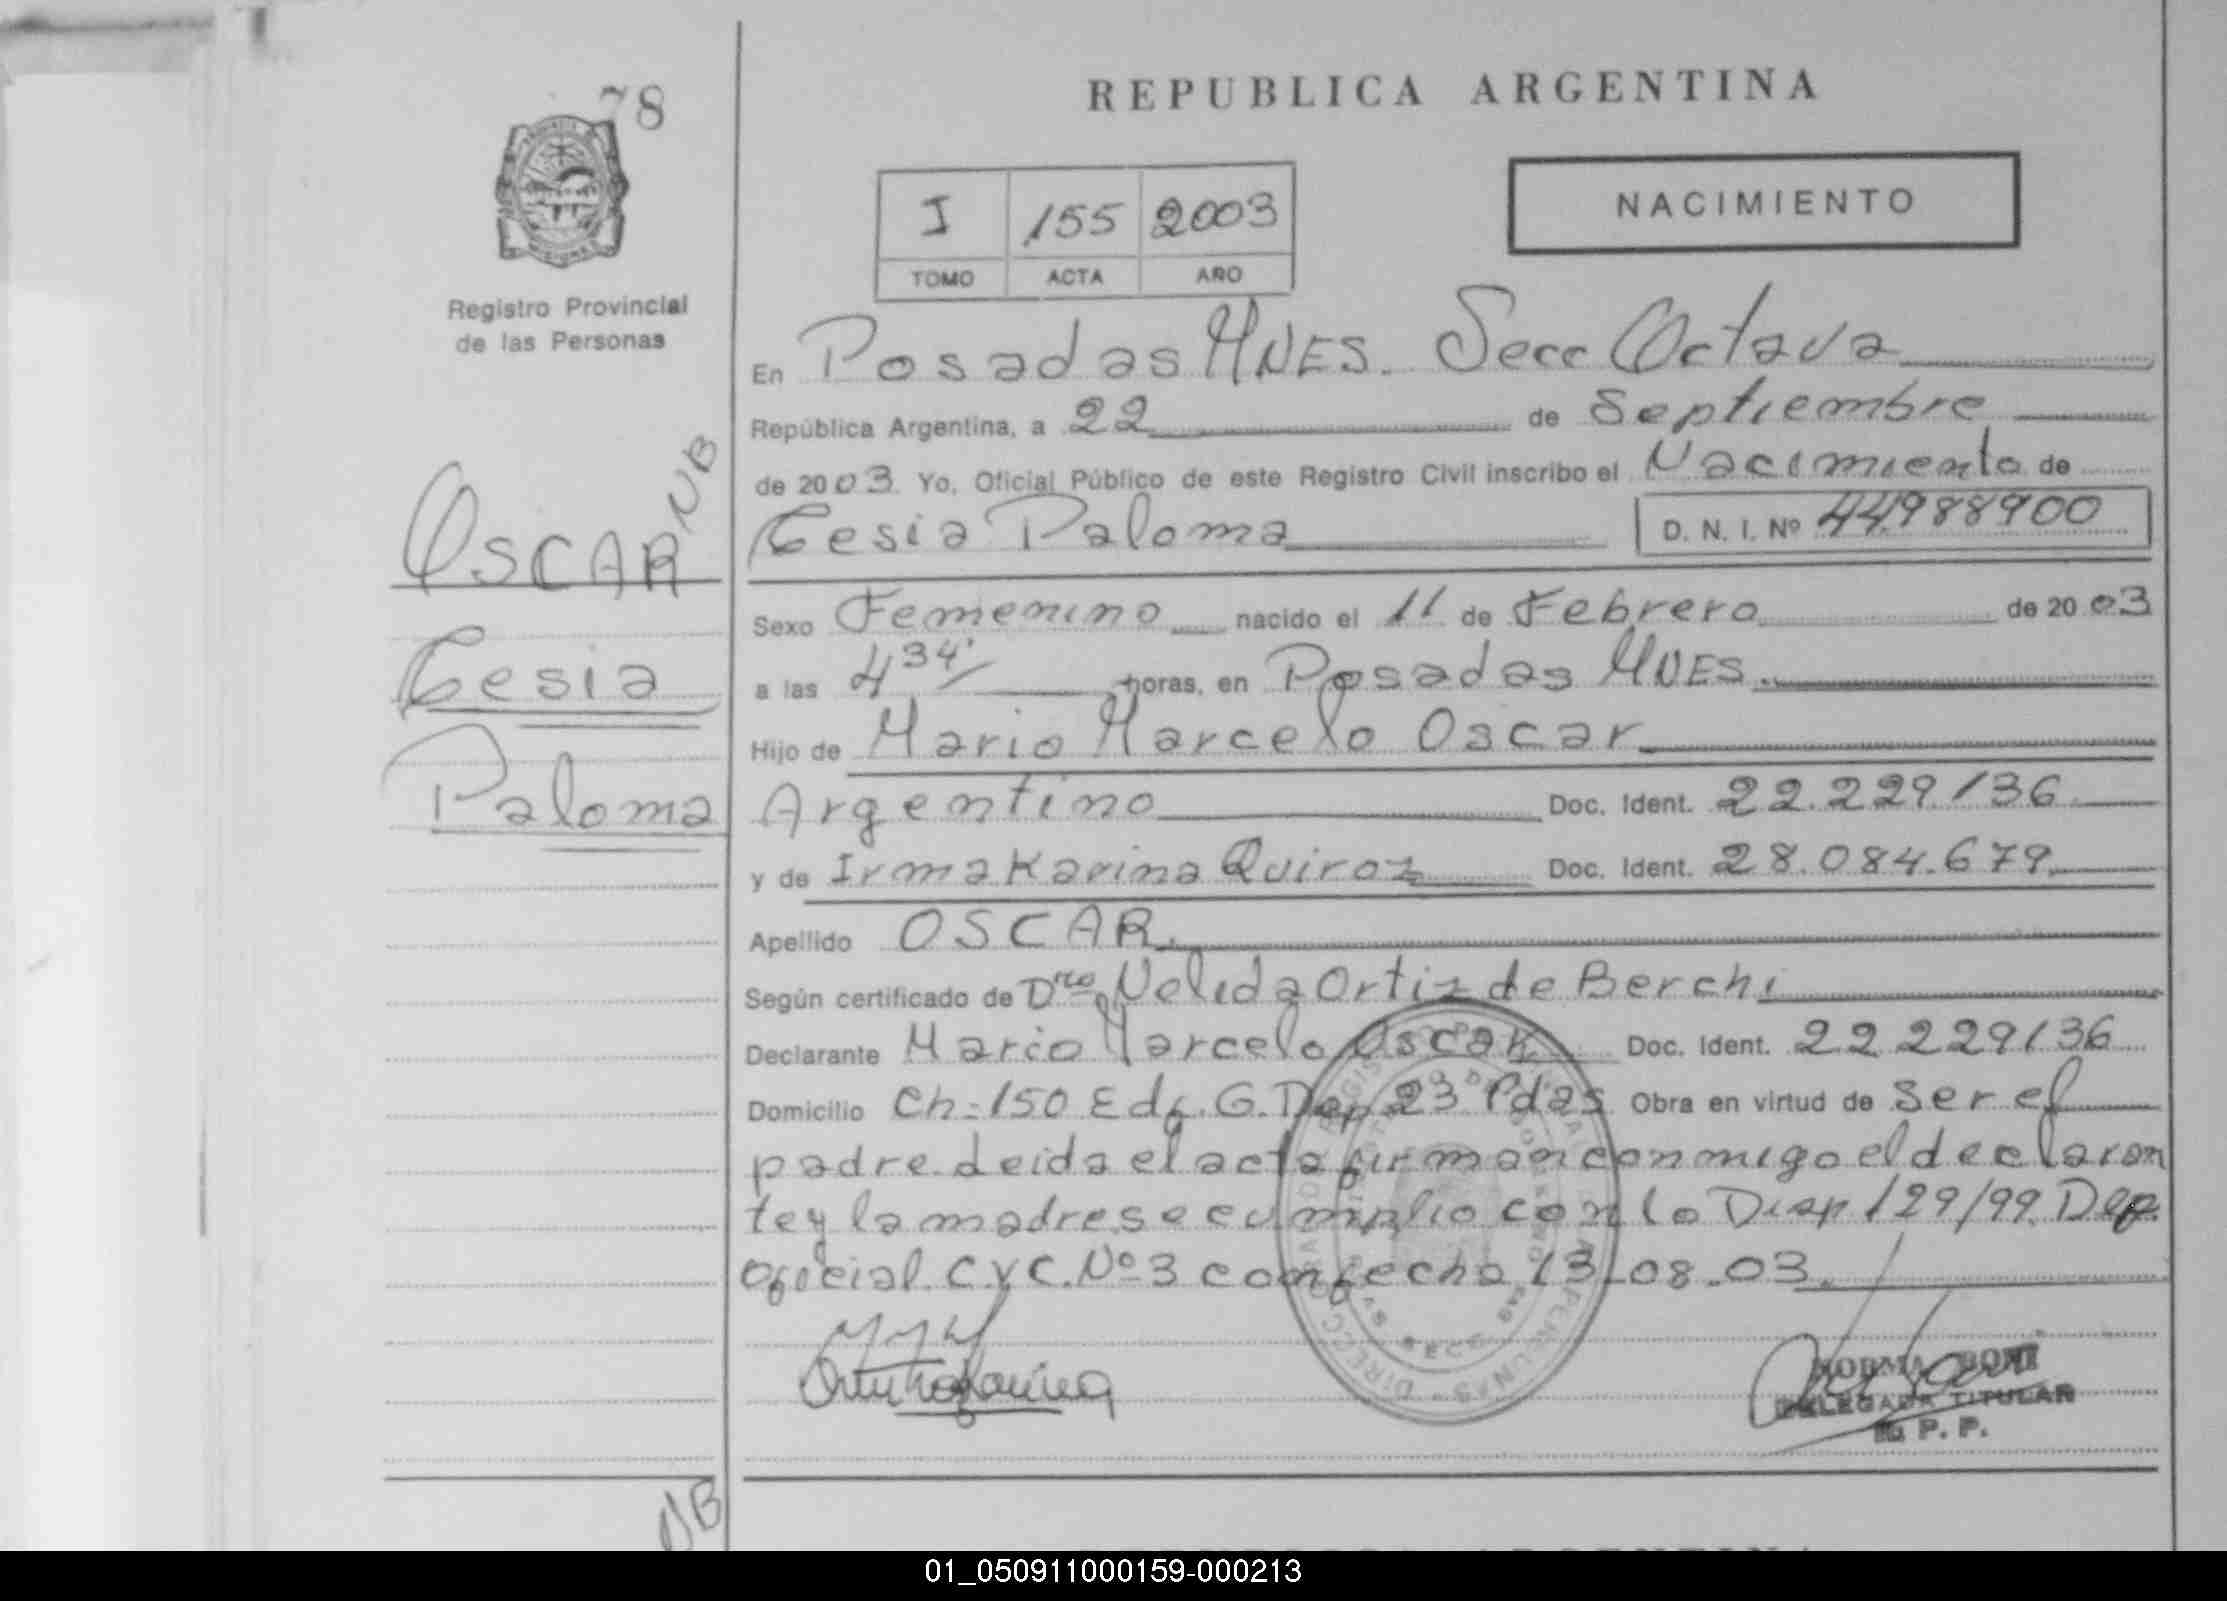 78
REPUBLICA ARGENTINA
I 155 2003
TOMO ACTA AÑO
NACIMIENTO
Registro Provincial
de las Personas
En Posadas MNES. Secc Octava
República Argentina, a 22 de Septiembre
de 2003 Yo, Oficial Público de este Registro Civil inscribo el Nacimiento de
Cesia Paloma D. N. I. Nº 44988900
NB
OSCAR
Cesia
Paloma
Sexo Femenino nacido el 11 de Febrero de 2003
a las 4 34' horas, en Posadas MNES.
Hijo de Mario Marcelo Oscar
Argentino Doc. Ident. 22.229136
y de Irma Karina Quiroz Doc. Ident. 28.084.679
Apellido OSCAR
Según certificado de Dra Nelida Ortiz de Berchi
Declarante Mario Marcelo Oscar Doc. Ident. 22229136
Domicilio Ch-150 Edf. G. Dep 23 Pdas Obra en virtud de ser el
padre. Leida el acta firman conmigo el declaran
te y la madre se cumplio con la Disp 129/99. Dep.
Oficial C.y C. Nº 3 con fecha 13-08-03.
NORMA BONI
DELEGADA TITULAR
R. P. P.
NB
01_050911000159-000213